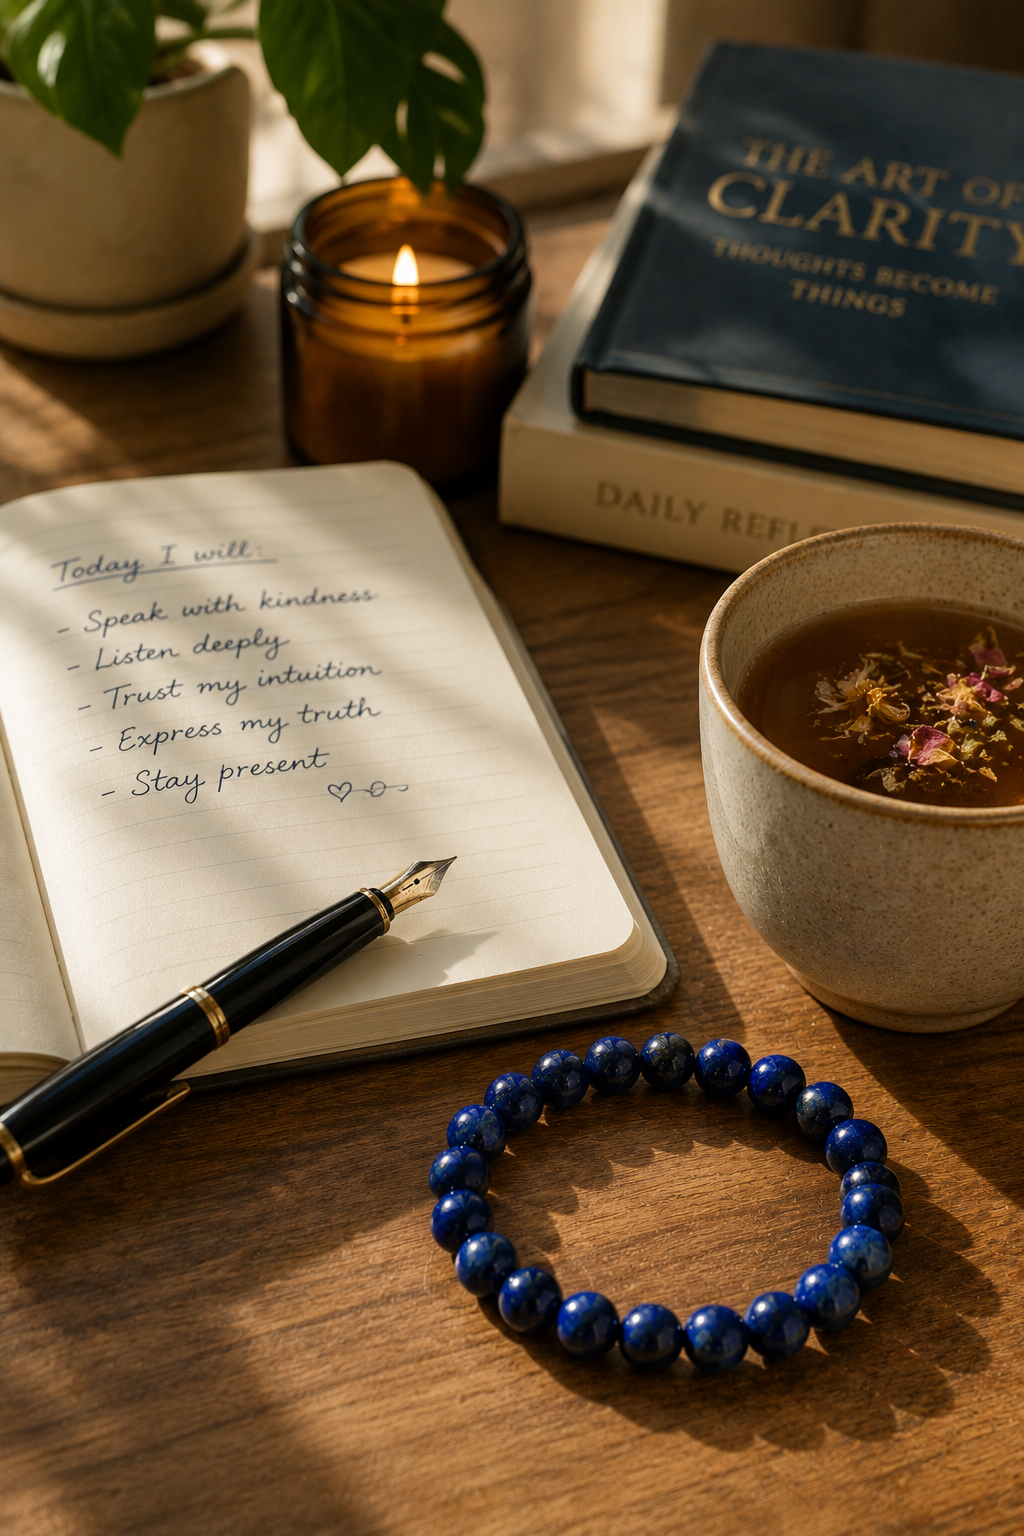 THE ART OF
CLARITY
THOUGHTS BECOME
THINGS
DAILY
Today I will:
- Speak with kindness
- Listen deeply
- Trust my intuition
- Express my truth
- Stay present